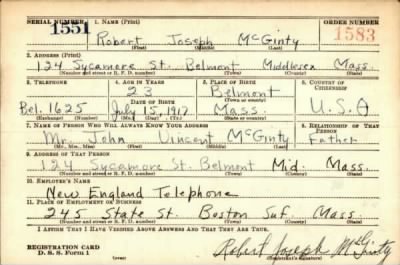 SERIAL NUMBER 1. NAME (Print) ORDER NUMBER
1551 Robert Joseph McGinty 1583
(First) (Middle) (Last)
2. ADDRESS (Print)
124 Sycamore St. Belmont Middlesex Mass.
(Number and street or R. F. D. number) (Town) (County) (State)
3. TELEPHONE 4. AGE IN YEARS 5. PLACE OF BIRTH 6. COUNTRY OF CITIZENSHIP
23 Belmont
DATE OF BIRTH (Town or county)
Bel. 1625 July 15 1917 Mass. U.S.A
(Exchange) (Number) (Mo.) (Day) (Yr.) (State or country)
7. NAME OF PERSON WHO WILL ALWAYS KNOW YOUR ADDRESS 8. RELATIONSHIP OF THAT PERSON
Mr. John Vincent McGinty Father
(Mr., Mrs., Miss) (First) (Middle) (Last)
9. ADDRESS OF THAT PERSON
124 Sycamore St. Belmont Mid. Mass.
(Number and street or R. F. D. number) (Town) (County) (State)
10. EMPLOYER'S NAME
New England Telephone
11. PLACE OF EMPLOYMENT OR BUSINESS
245 State St. Boston Suf. Mass.
(Number and street or R. F. D. number) (Town) (County) (State)
I AFFIRM THAT I HAVE VERIFIED ABOVE ANSWERS AND THAT THEY ARE TRUE.
REGISTRATION CARD
D. S. S. Form 1 (over) Robert Joseph McGinty
(Registrant's signature)